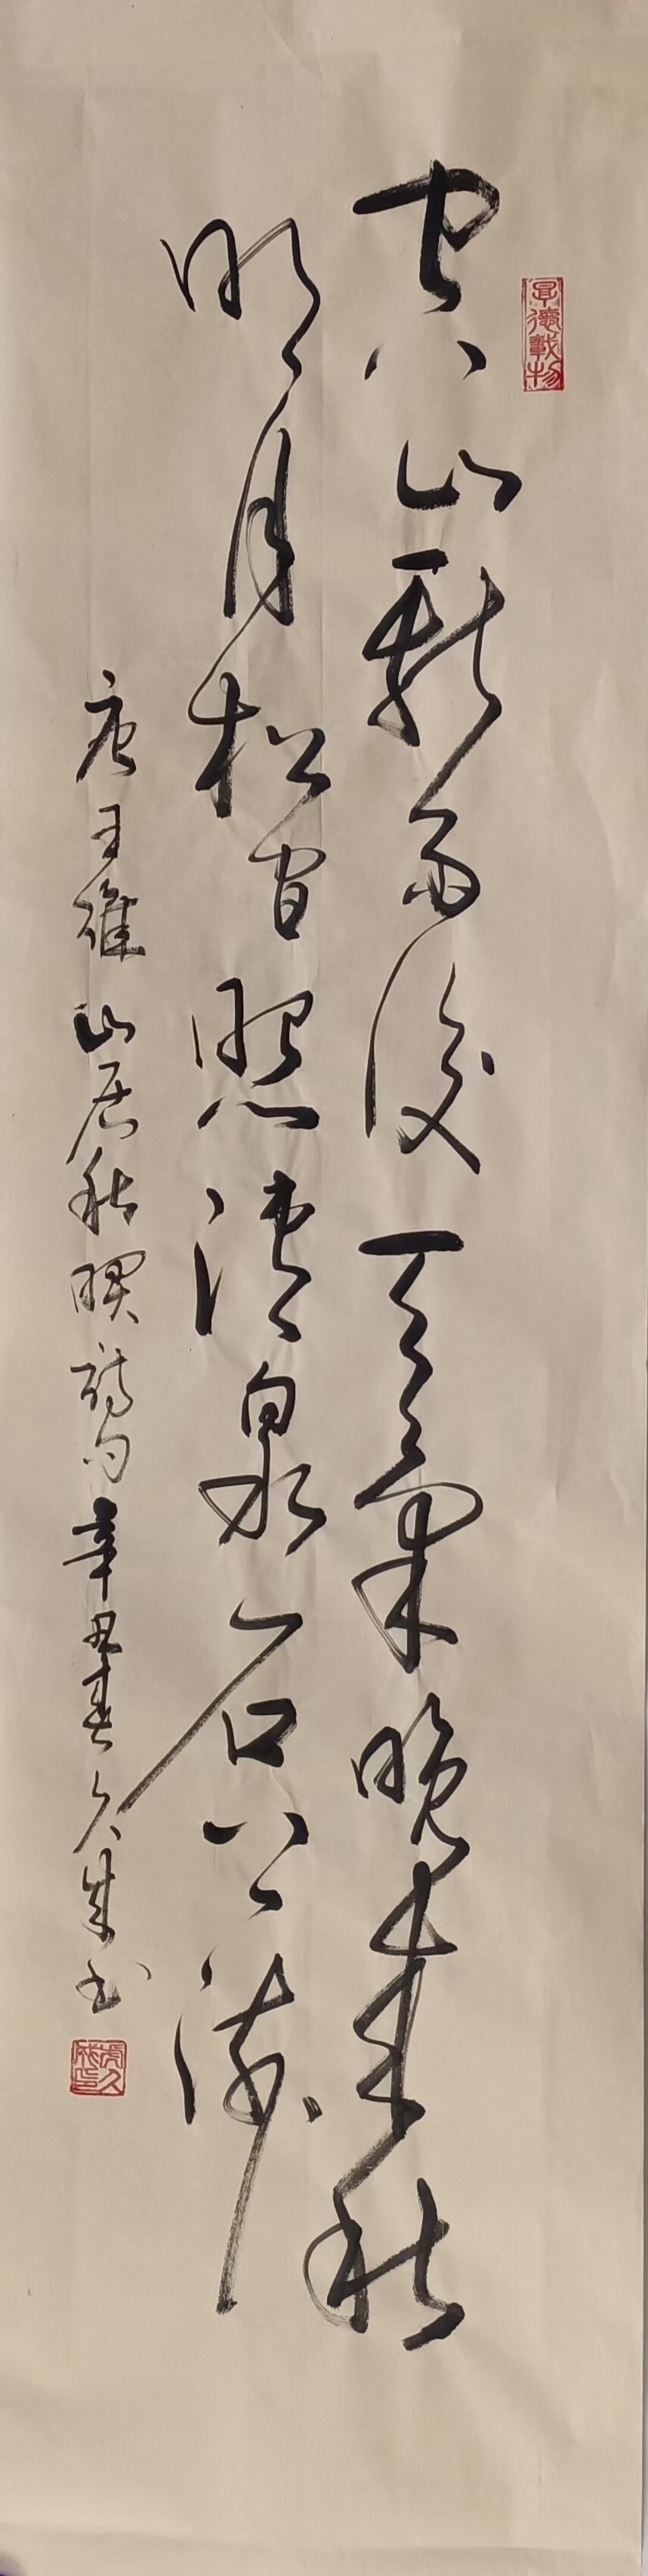 空山新雨後天氣晚來秋
明月松間照清泉石上流
唐王維山居秋暝詩句辛丑春久成书
厚德載物